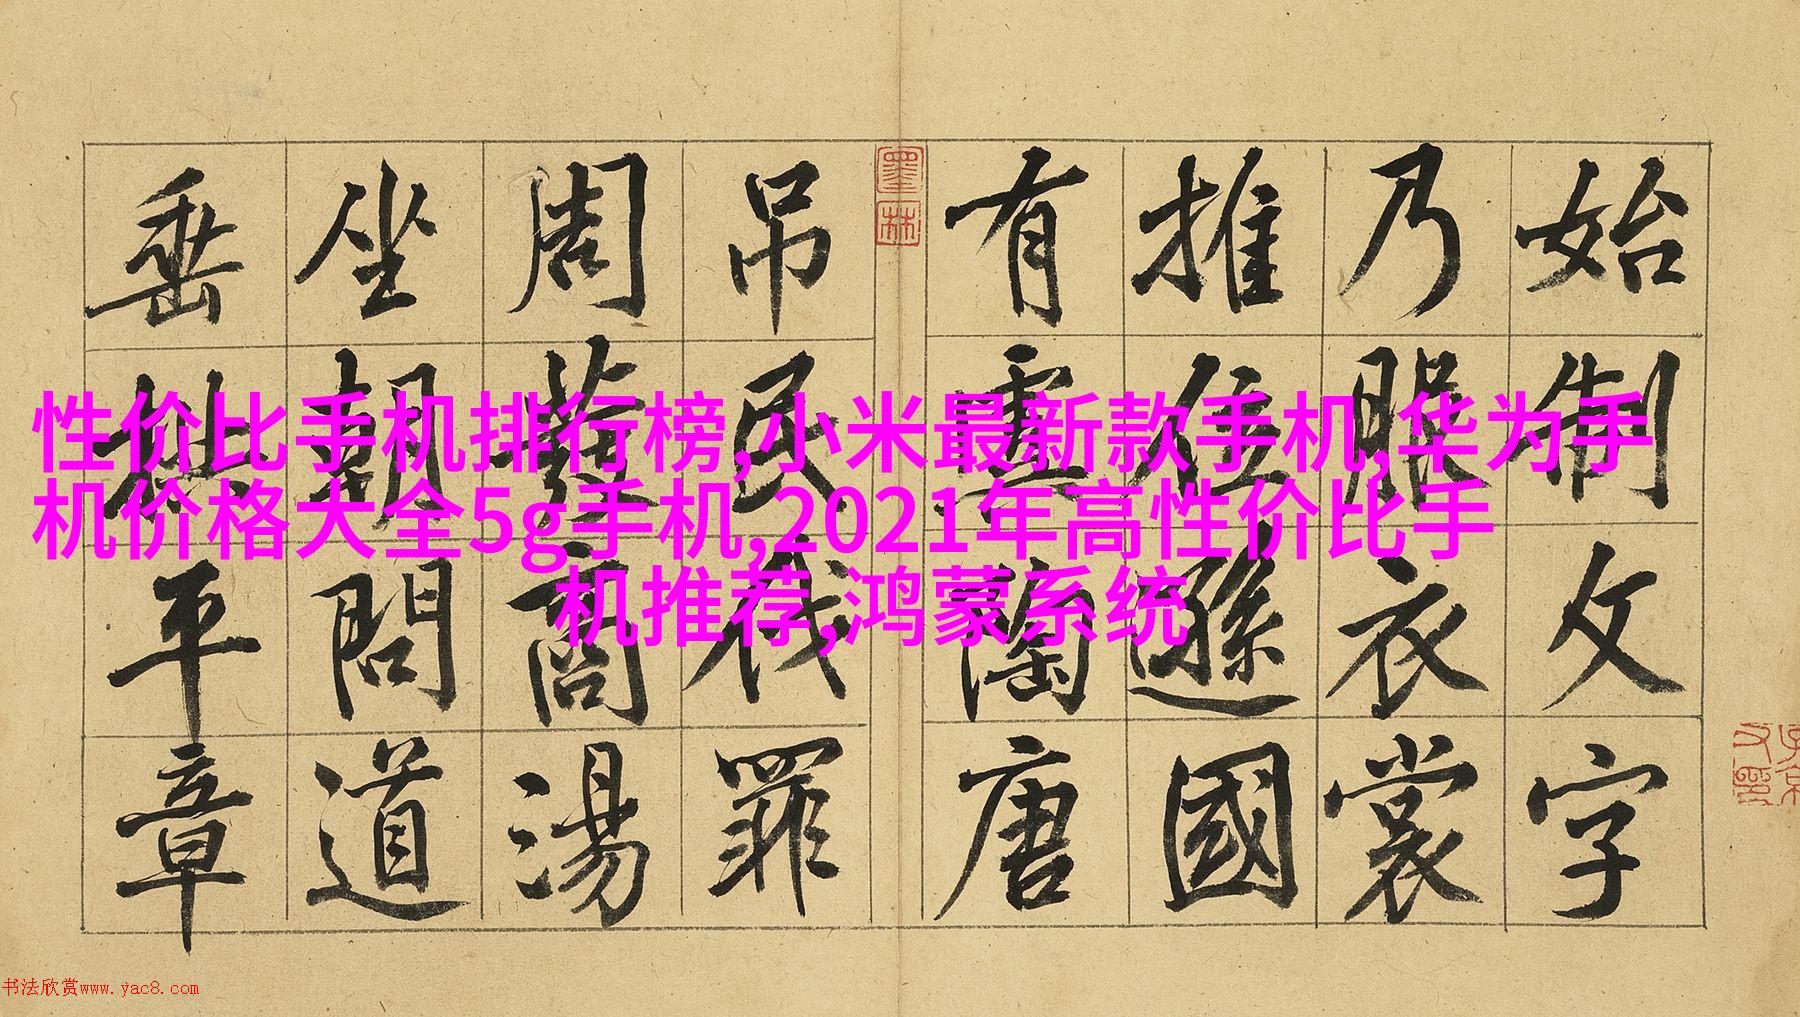 始制文字
乃服衣裳
推位遜國
有虞陶唐
墨林
吊民伐罪
周發商湯
坐朝問道
垂拱平章
性价比手机排行榜,小米最新款手机,华为手
机价格大全5g手机,2021年高性价比手
机推荐,鸿蒙系统
书法欣赏www.yac8.com